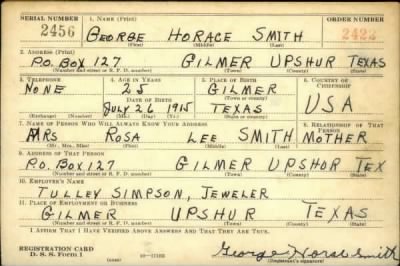 SERIAL NUMBER 1. NAME (Print) ORDER NUMBER
2456 GEORGE HORACE SMITH 2422
(First) (Middle) (Last)
2. ADDRESS (Print)
P.O. BOX 127 GILMER UPSHUR TEXAS
(Number and street or R. F. D. number) (Town) (County) (State)
3. TELEPHONE 4. AGE IN YEARS 5. PLACE OF BIRTH 6. COUNTRY OF CITIZENSHIP
NONE 25 GILMER USA
DATE OF BIRTH (Town or county)
JULY 26 1915 TEXAS
(Exchange) (Number) (Mo.) (Day) (Yr.) (State or country)
7. NAME OF PERSON WHO WILL ALWAYS KNOW YOUR ADDRESS 8. RELATIONSHIP OF THAT PERSON
MRS ROSA LEE SMITH MOTHER
(Mr., Mrs., Miss) (First) (Middle) (Last)
9. ADDRESS OF THAT PERSON
P.O. BOX 127 GILMER UPSHOR TEX
(Number and street or R. F. D. number) (Town) (County) (State)
10. EMPLOYER'S NAME
TULLEY SIMPSON, JEWELER
11. PLACE OF EMPLOYMENT OR BUSINESS
GILMER UPSHUR TEXAS
(Number and street or R. F. D. number) (Town) (County) (State)
I AFFIRM THAT I HAVE VERIFIED ABOVE ANSWERS AND THAT THEY ARE TRUE.
REGISTRATION CARD
D. S. S. Form 1 (over) George Horace Smith
(Registrant's signature)